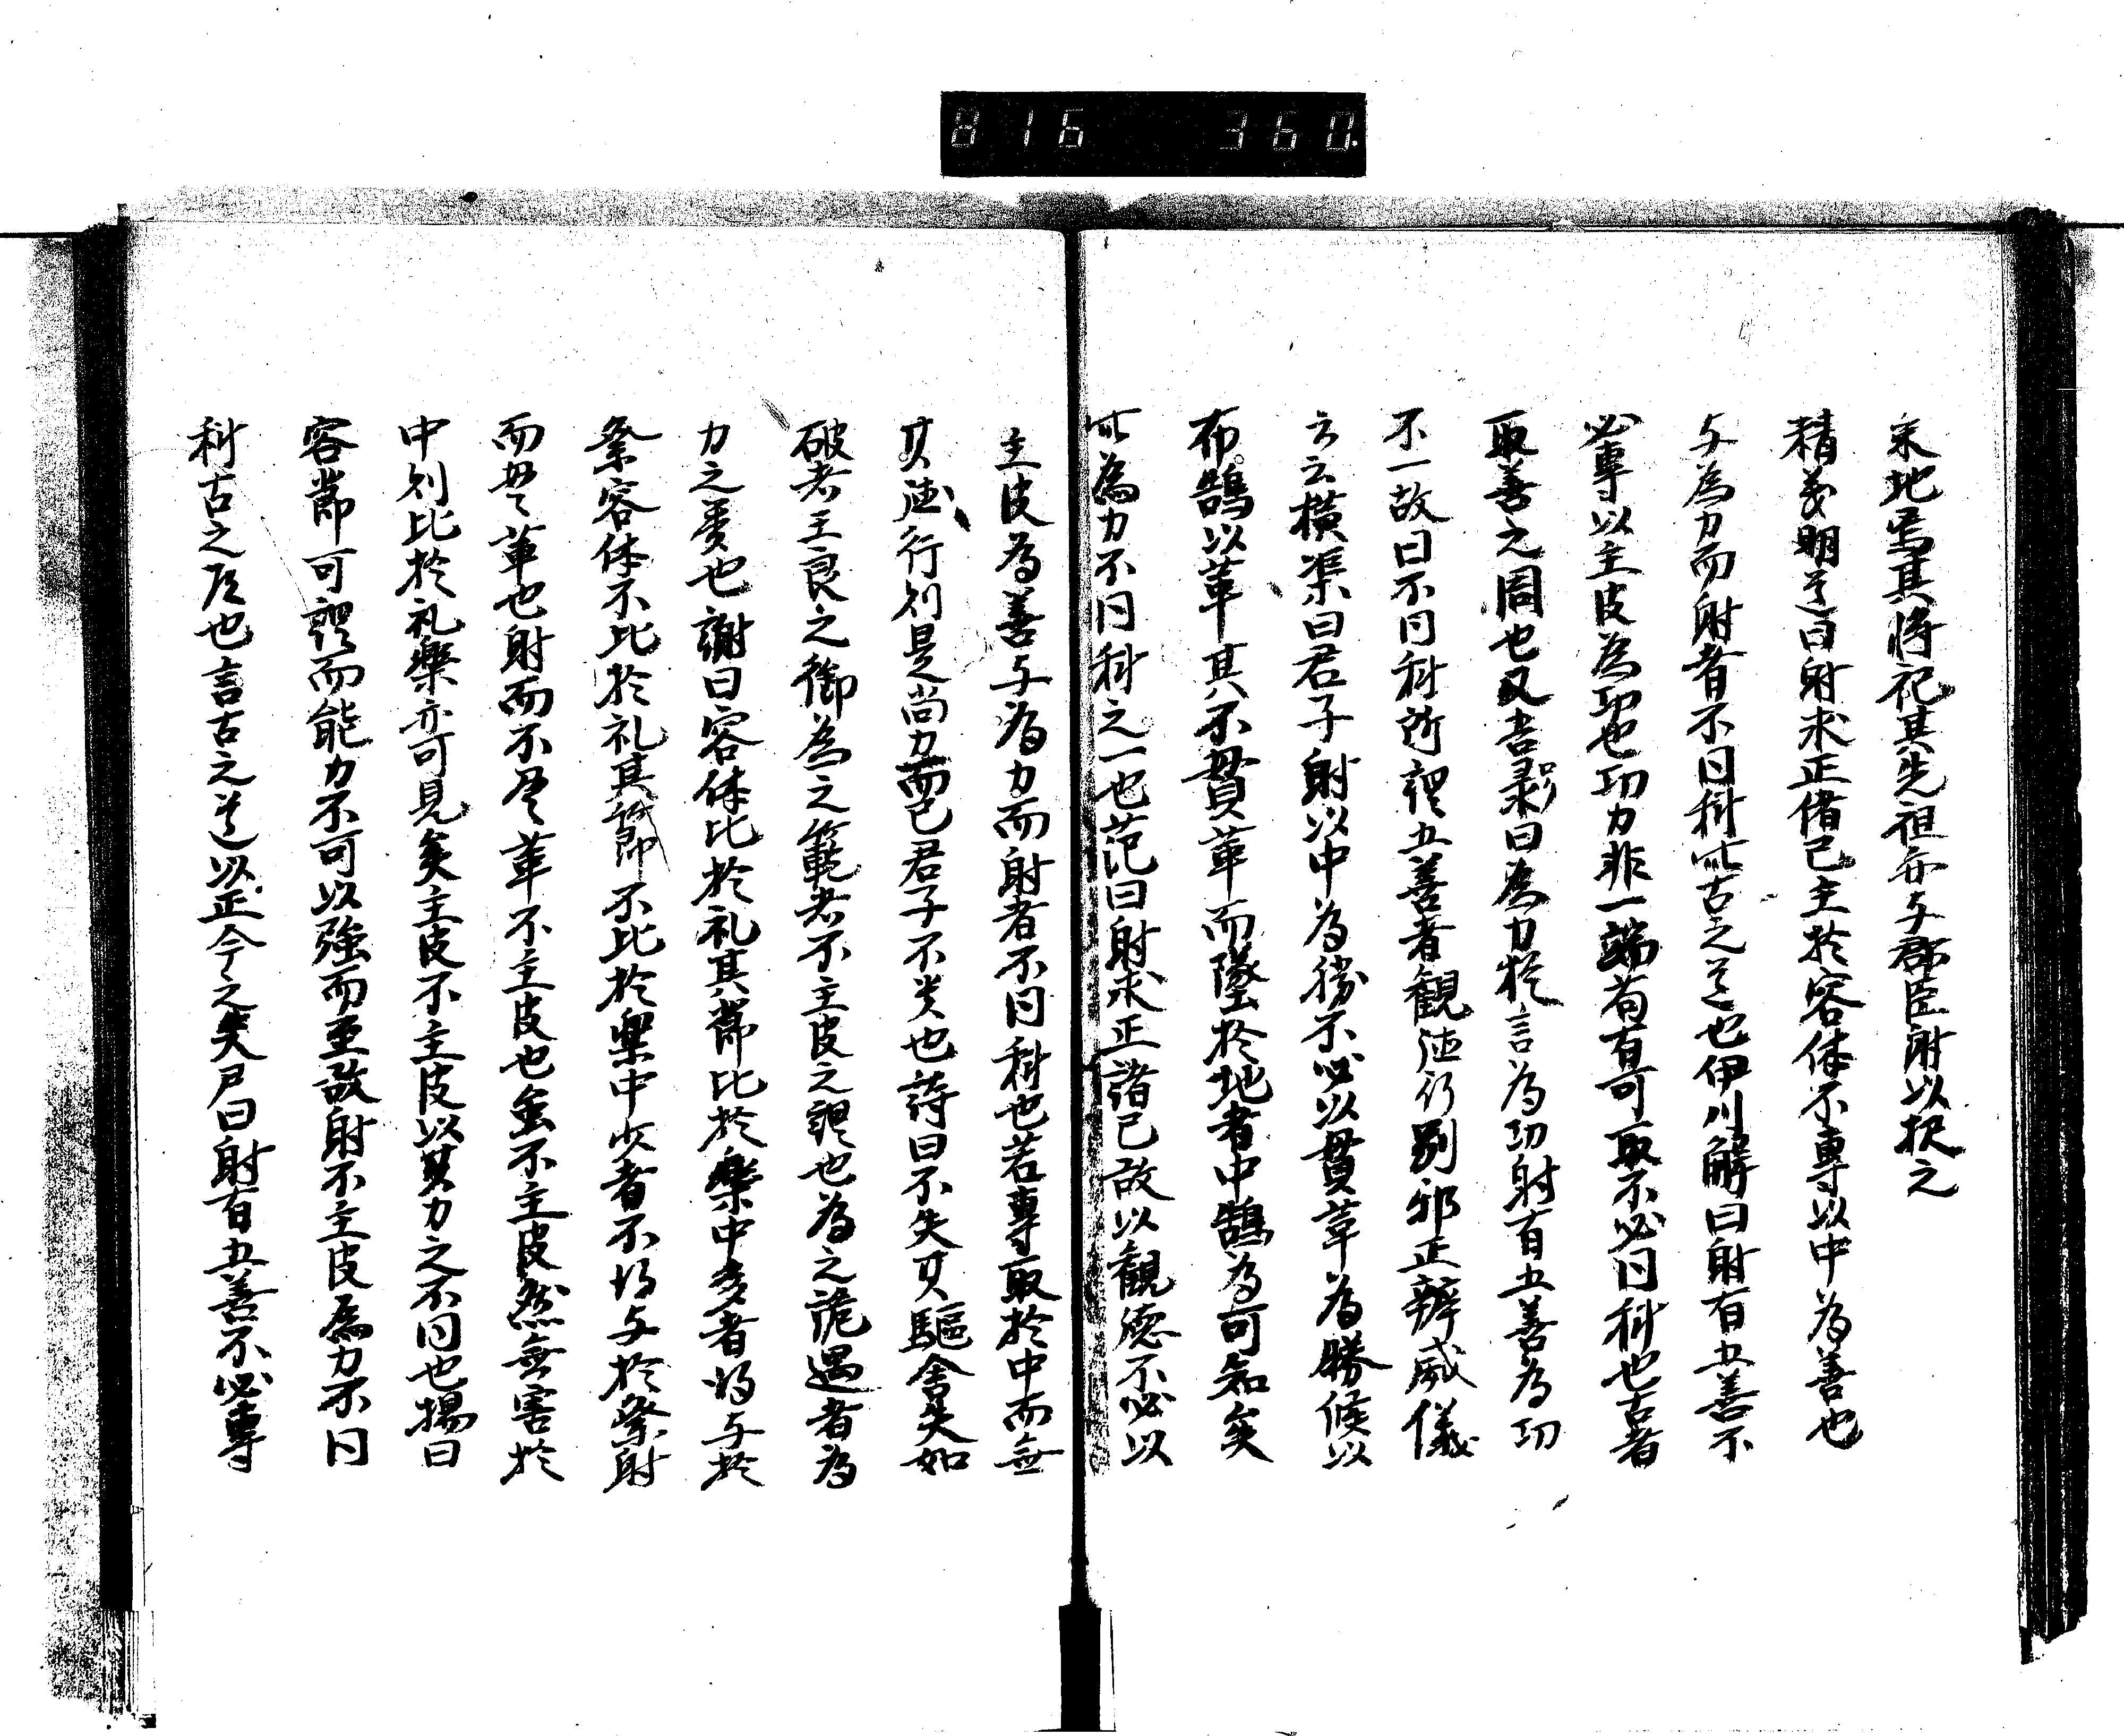 816 360.
采地焉其将祀其先祖亦与郡臣射以択之
精義明道曰射求正諸己主於容体不専以中為善也
与為力而射者不同科此古之道也伊川解曰射有五善不
必専以主皮為功也功力非一端苟有可取不必同科也古者
取善之周也又吾彔曰為力猶言為功射有五善為功
不一故曰不同科所謂五善者観徳行別邪正辨威儀
云云横渠曰君子射以中為勝不必以貫革為勝候以
布鵠以革其不貫革而墜於地者中鵠為可知矣
此為力不同科之一也范曰射求正諸己故以観徳不必以
主皮為善与為力而射者不同科也若専取於中而無
其徳行則是尚力而已君子不貴也詩曰不失其駆舎矢如
破者王良之御為之範者不主皮之謂也為之詭遇者為
力之憂也謝曰容体比於礼其節比於楽中多者得与於
祭容体不比於礼其節不比於楽中少者不得与於祭射
而尽革也射而不尽革不主皮也雖不主皮然無害於
中則比於礼楽亦可見矣主皮不主皮以其力之不同也楊曰
容節可謂而能力不可以強而至故射不主皮為力不同
科古之道也言古之道以正今之失尹曰射有五善不必専